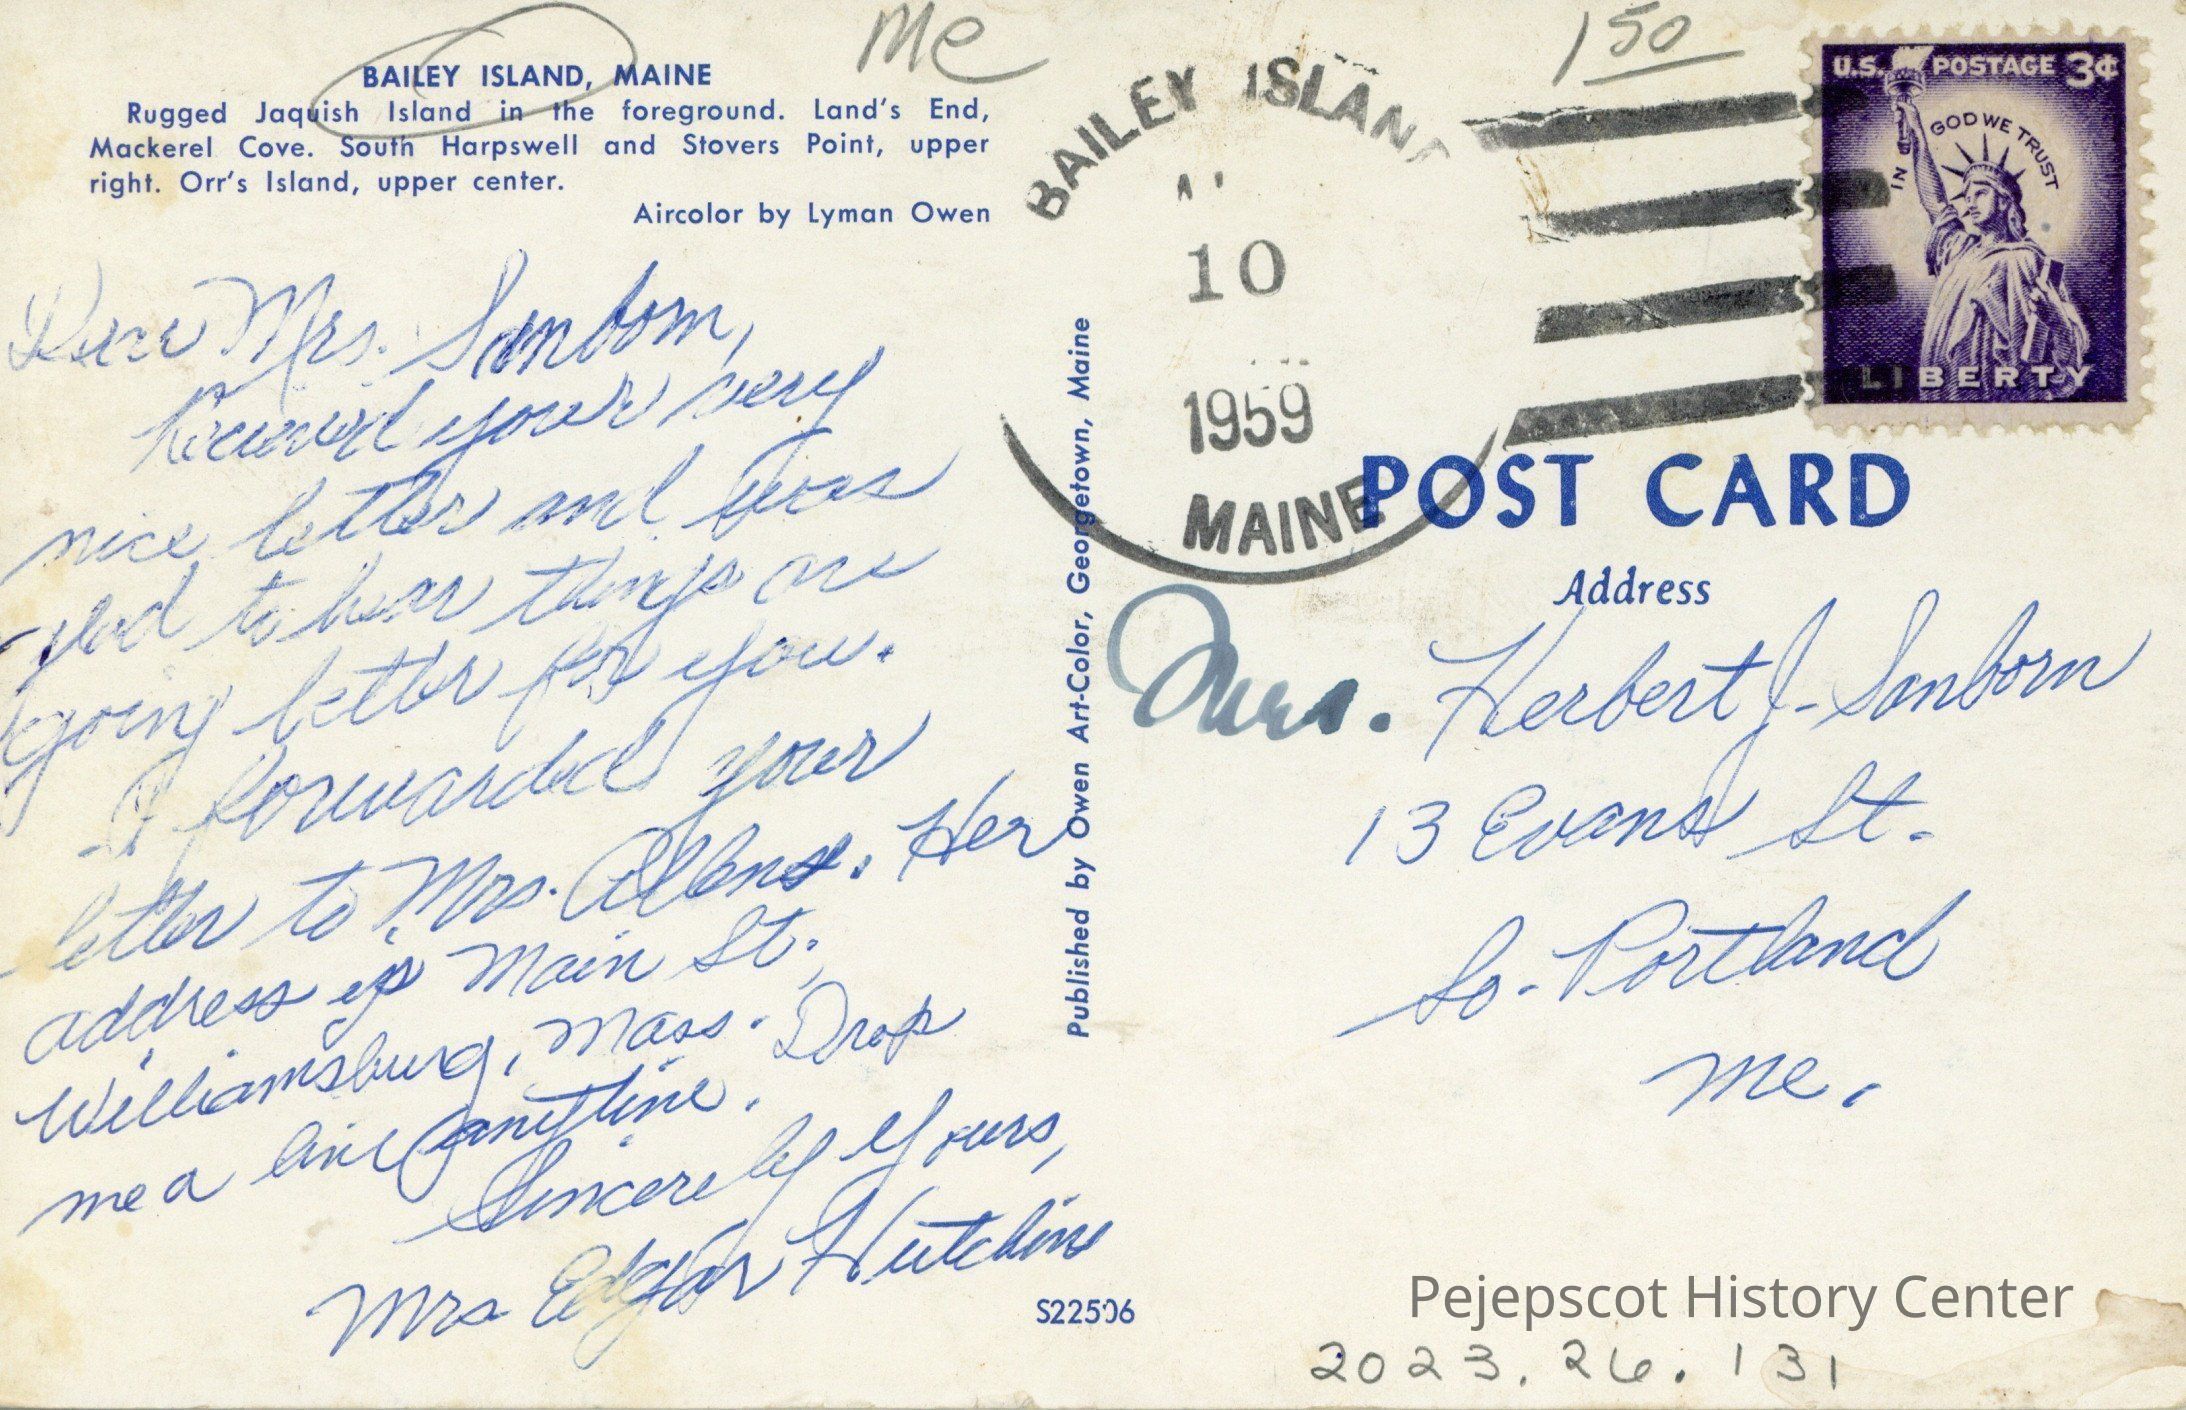 Me
1 50
BAILEY ISLAND, MAINE
Rugged Jaquish Island in the foreground. Land's End,
Mackerel Cove. South Harpswell and Stovers Point, upper
right. Orr's Island, upper center.
Aircolor by Lyman Owen
Dear Mrs. Sanborn,
Received your very
nice letter and was
glad to hear things are
going better for you.
I forwarded your
letter to Mrs. Allen. Her
address is Main St.,
Williamsburg, Mass. Drop
me a line anytime.
Sincerely Yours,
Mrs Edgar Hutchins
S22506
Published by Owen Art-Color, Georgetown, Maine
BAILEY ISLAND
10
1959
MAINE
U.S. POSTAGE 3¢
IN GOD WE TRUST
LIBERTY
POST CARD
Address
Mrs. Herbert J. Sanborn
13 Evans St.
So. Portland
Me.
Pejepscot History Center
2023.26.131